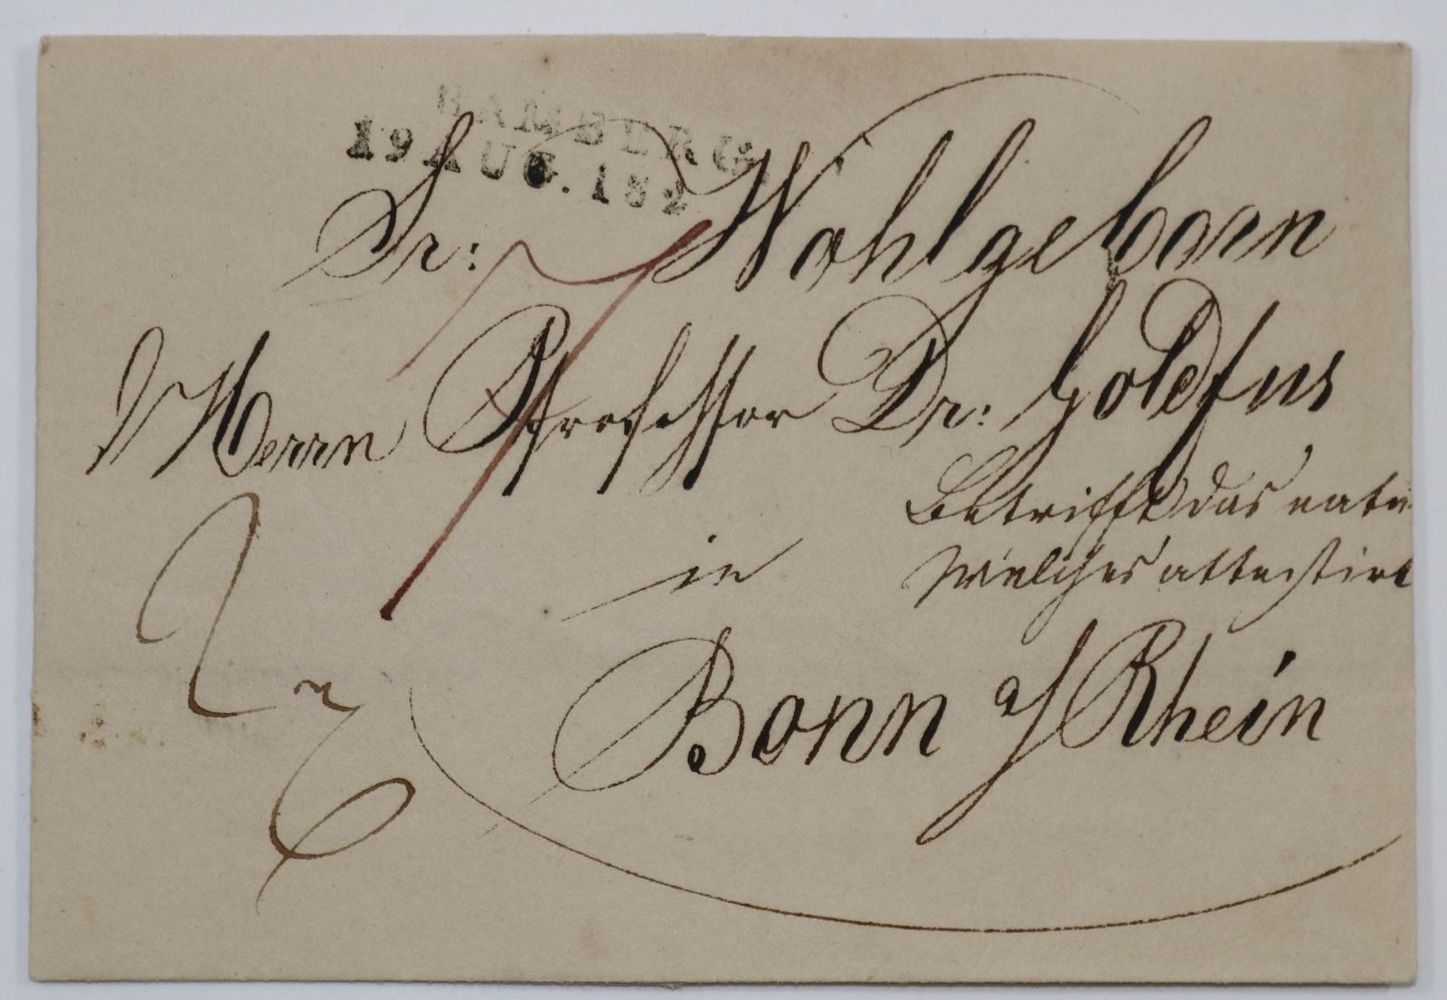 BAMBERG.
19 AUG. 182
Sr: Wohlgeborn
Herrn Professor Dr: Goldfus
Betrifft das natu
in
welches attestirt
Bonn a/Rhein
7